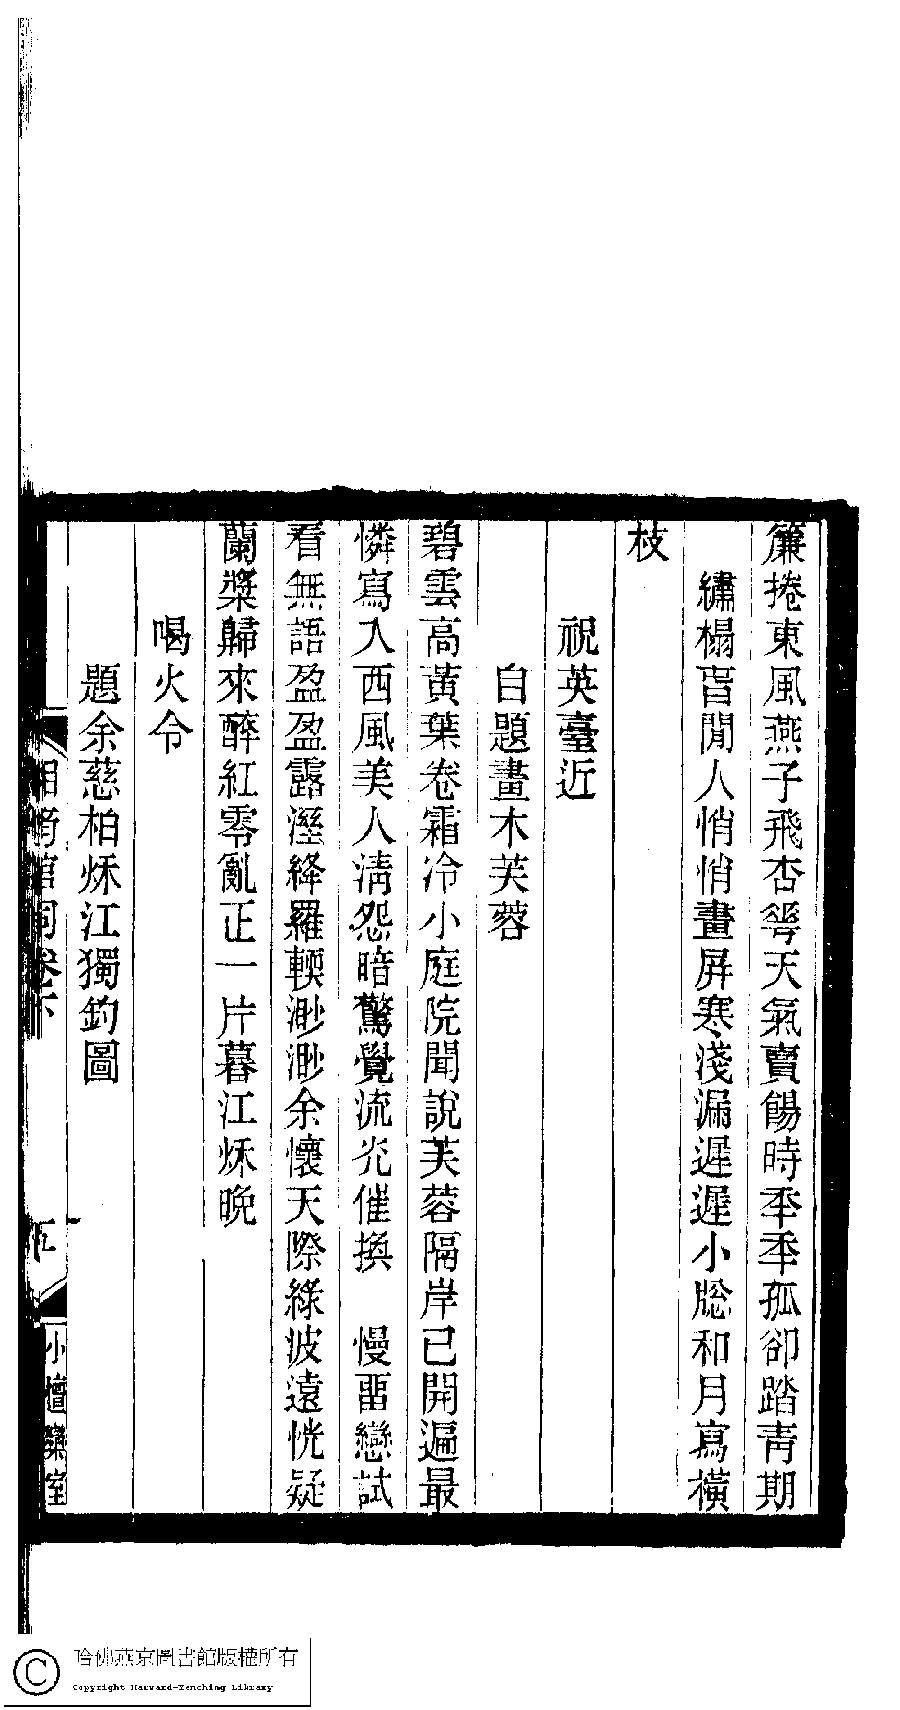 簾捲東風燕子飛杏𠌶天氣賣餳時秊秊孤卻踏青期
繡榻旹閒人悄悄畫屏寒淺漏遲遲小牎和月寫橫
枝
祝英臺近
自題畫木芙蓉
碧雲高黃葉卷霜冷小庭院聞說芙蓉隔岸已開遍最
憐寫入西風美人清怨暗驚覺流光催換　慢畱戀試
看無語盈盈露溼絳羅輭渺渺余懷天際綠波遠恍疑
蘭槳歸來醉紅零亂正一片暮江秌晚
喝火令
題余慈柏秌江獨釣圖
湘筠館詞卷下
五
小檀欒室
哈佛燕京圖書館版權所有
Copyright Harvard-Yenching Library